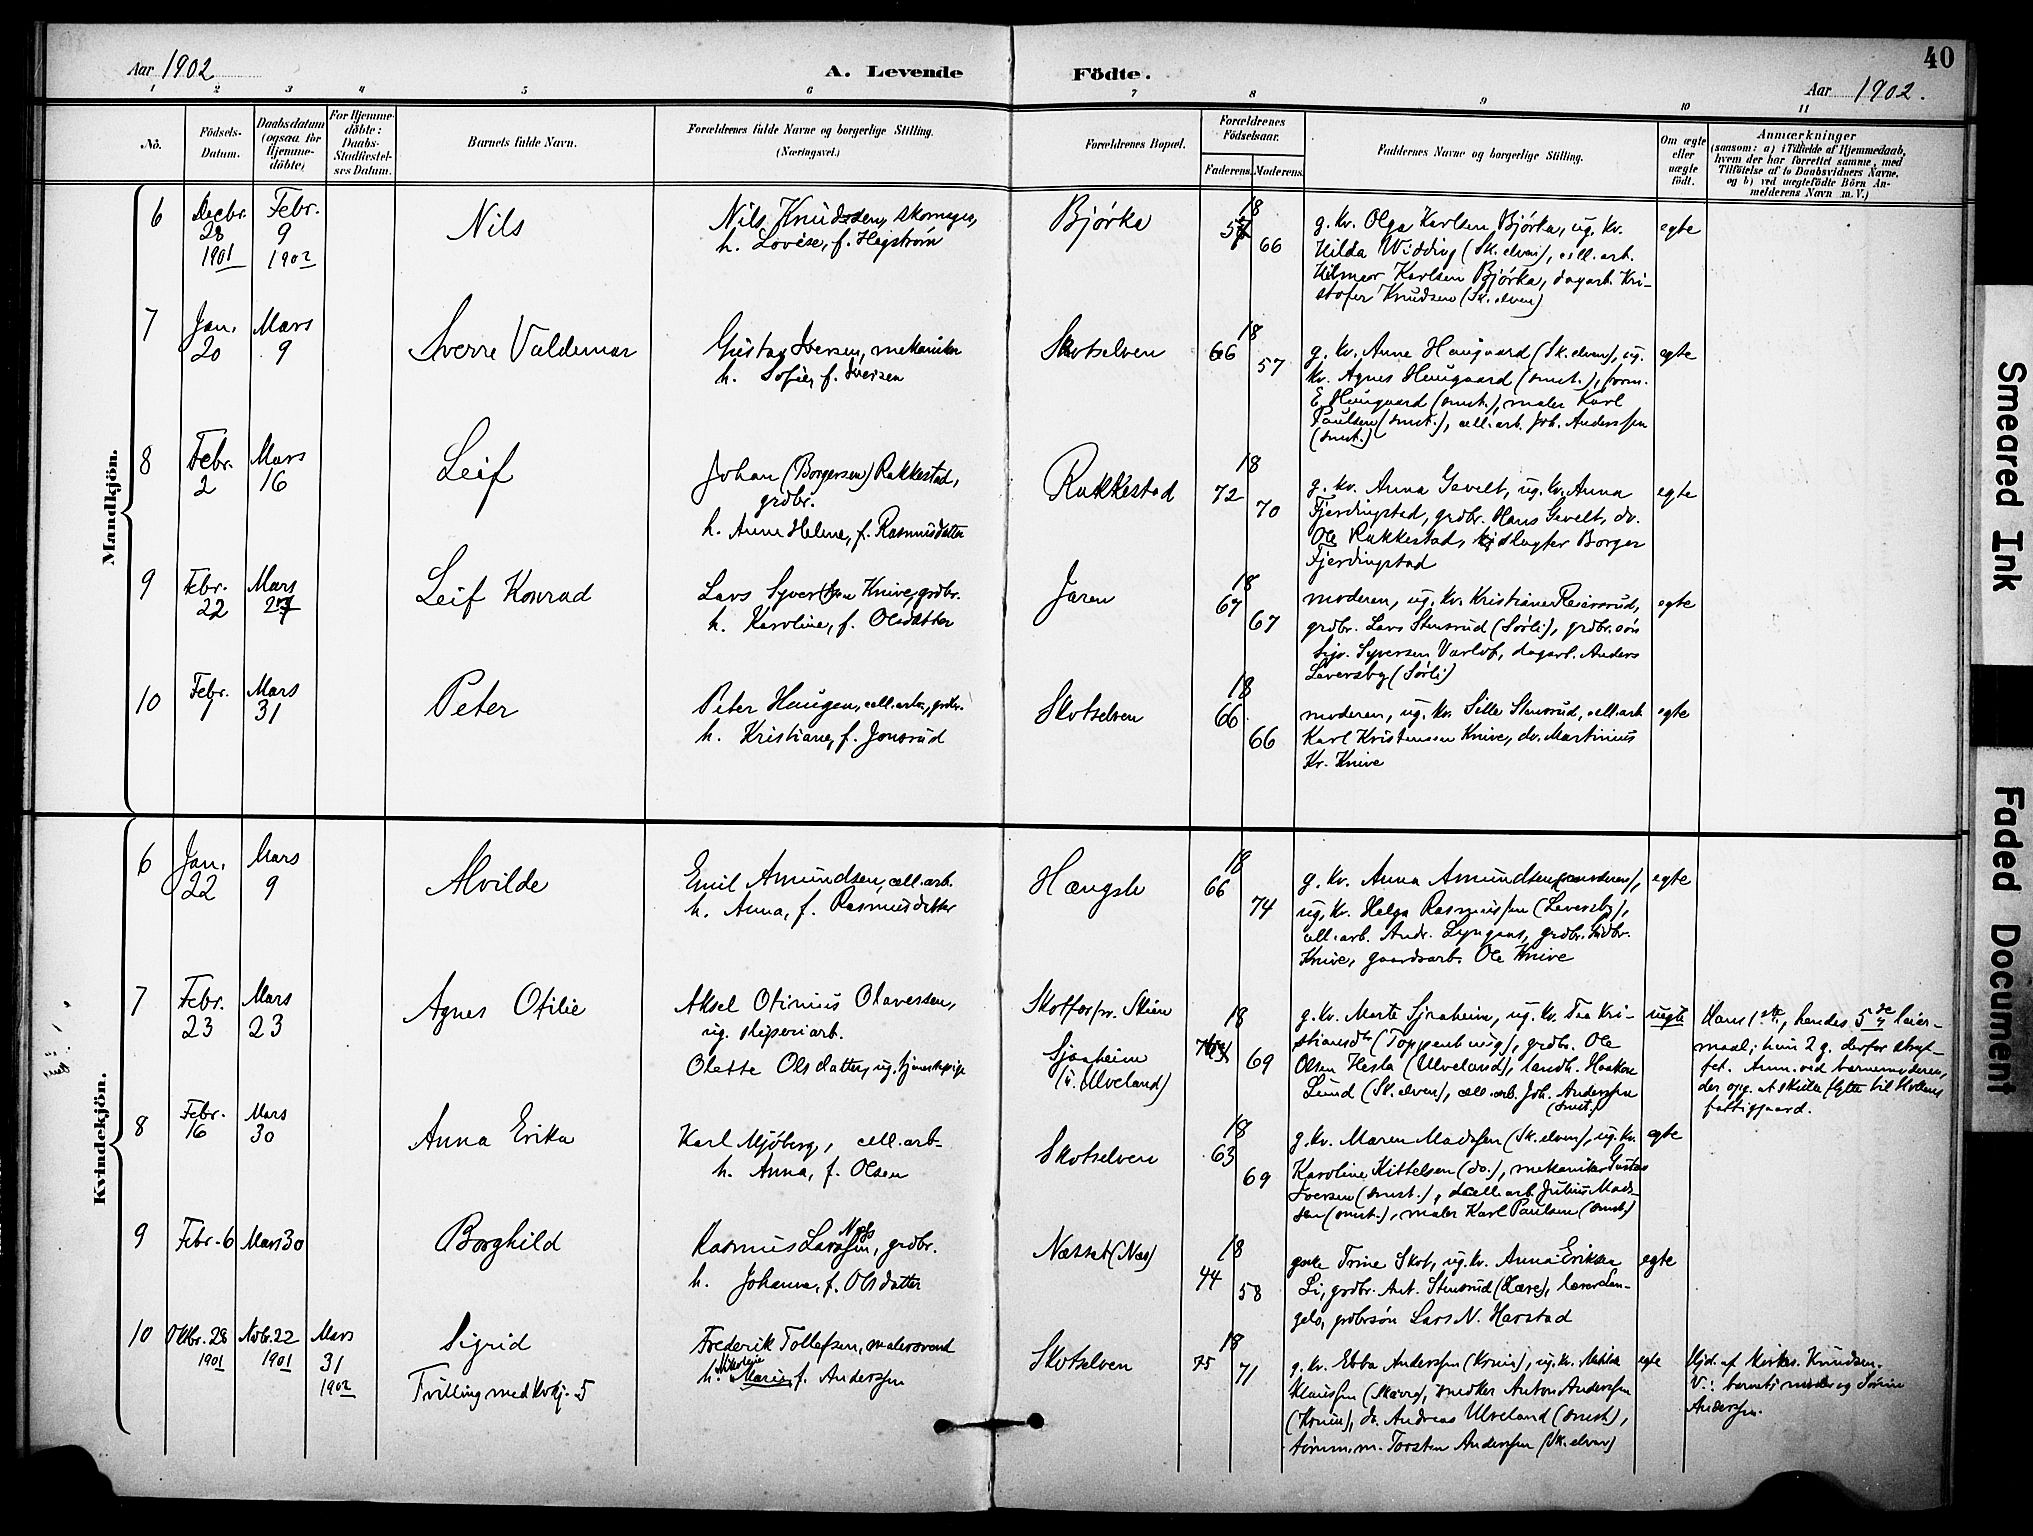 40
Aar 1902
A. Levende Födte.
Aar 1902.
1 2 3 4 5 6 7 8 9 10 11
No.
Födsels-
Datum.
Daabsdatum
(ogsaa for
Hjemme-
döbte)
For Hjemme-
döbte:
Daabs-
Stadfæstel-
ses Datum.
Barnets fulde Navn.
Forældrenes fulde Navne og borgerlige Stilling.
(Næringsvei.)
Forældrenes Bopæl.
Forældrenes
Födselsaar.
Faderens. Moderens.
Faddernes Navne og borgerlige Stilling.
Om ægte
eller
uægte
födt.
Anmærkninger
(saasom: a) i Tilfælde af Hjemmedaab,
hvem der har forrettet samme, med
Tilföielse af to Daabsvidners Navne.
og b) ved uægtefödte Börn An-
melderens Navn m. V.)
Mandkjön.
6
Decbr.
28
1901
Febr.
9
1902
Nils
Nils Knudssen, skomager,
h. Lovise, f. Hegstrøm
Bjørka
18
66
g. kv. Olga Karlsen Bjørka, ug. kv.
Hilda Widding (Sk.elven), cell.arb.
Hilmar Karlsen Bjørka, dagarb. Kri-
stofer Knudsen (Sk.elven)
egte
7
Jan.
20
Mars
9
Sverre Valdemar
Gustav Iversen, mekaniker
h. Sofie, f. Iversen
Skotselven
18
66
57
g. kv. Anne Haugaard (Sk.elven), ug.
kv. Agnes Haugaard (smst.), form.
E. Haugaard (smst.), maler Karl
Paulsen (smst.), cell.arb. Joh. Anderssen
(smst.)
egte
8
Febr.
2
Mars
16
Leif
Johan (Borgersen) Rakkestad,
grdbr.
h. Anne Helene, f. Rasmusdatter
Rakkestad
18
72
70
g. kv. Anna Gevelt, ug. kv. Anna
Fjerdingstad, grdbr. Hans Gevelt, do.
Ole Rakkestad, slagter Borger
Fjerdingstad
egte
9
Febr.
22
Mars
27
Leif Konrad
Lars Syversen Knive, grdbr.
h. Karoline, f. Olsdatter
Jaren
18
67
67
moderen, ug. kv. Kristiane Reiersrud,
grdbr. Lars Stensrud (Sørli), grdbr.søn
Sig. Syversen Varlof, dagarb. Anders
Leversby (Sørli)
egte
10
Febr.
1
Mars
31
Peter
Peter Haugen, cell.arb., grdbr.
h. Kristiane, f. Jonsrud
Skotselven
18
66
66
moderen, ug. kv. Sille Stensrud, cell.arb
Karl Kristensen Knive, do. Martinius
Kr. Knive
egte
Kvindekjön.
6
Jan.
22
Mars
9
Alvilde
Emil Amundsen, cell.arb.
h. Anna, f. Rasmusdatter
Hængsle
18
66
74
g. kv. Anna Amundsen,
ug. kv. Helga Rasmussen (Leversby),
cell.arb. Andr. Lyngaas, grdbr. Gudbr.
Knive, gaardsarb. Ole Knive
egte
7
Febr.
23
Mars
23
Agnes Otilie
Aksel Otinius Olavessen,
ug. sliperiarb.
Olette Olsdatter, ug. tjenestepige
Skotfos pr. Skien
Sjaaheim
(u. Ulveland)
18
69
g. kv. Marte Sjaaheim, ug. kv. Tea Kri-
stiansdt (Toppenbrug), grdbr. Ole
Olsen Hesla (Ulveland), landh. Haakon
Lund (Sk.elven), cell.arb. Joh. Anderssen
(smst.)
uegte
Hans 1ste, hendes 5de leier-
maal; hun 2 g. derfor straf-
fet. Anm. ved barnemoderen,
der opg. at skulle flytte til Hollens
fattiggaard.
8
Febr.
16
Mars
30
Anna Erika
Karl Mjøberg, cell.arb.
h. Anna, f. Olsen
Skotselven
18
63
69
g. kv. Maren Madssen (Sk.elven), ug. kv.
Karoline Kittelsen (do.), mekaniker Gustav
Iversen (smst.), cell.arb. Julius Mads-
sen (smst.), maler Karl Paulsen (smst.)
egte
9
Febr. 6
Mars 30
Borghild
Rasmus Larssen Næss, grdbr.
h. Johanne, f. Olsdatter
Næsset (Næs)
18
44
58
enke Trine Skot, ug. kv. Anna Eriksen
Li, grdbr. Ant. Stensrud (Lære), lærer Lan-
gelo, grdbrsøn Lars N. Harstad
egte
10
Oktbr. 28
1901
Nvbr. 22
1901
Mars
31
1902
Sigrid
Tvilling med Kvkj. 5
Frederik Tollefsen, malersvend
h. Nikoleie Marie, f. Anderssen
Skotselven
18
75
71
g. kv. Ebba Anderssen (Krnin), ug. kv. Matilda
Klaussen (Mæro), snedker Anton Anderssen
(Krnin), do. Andreas Ulveland (smst),
tømm.m. Torsten Anderssen (Sk.elven)
egte
Hjd. af Kirks. Knudsen.
V.: barnets moder og Sørine
Anderssen.
Smeared Ink
Faded Document